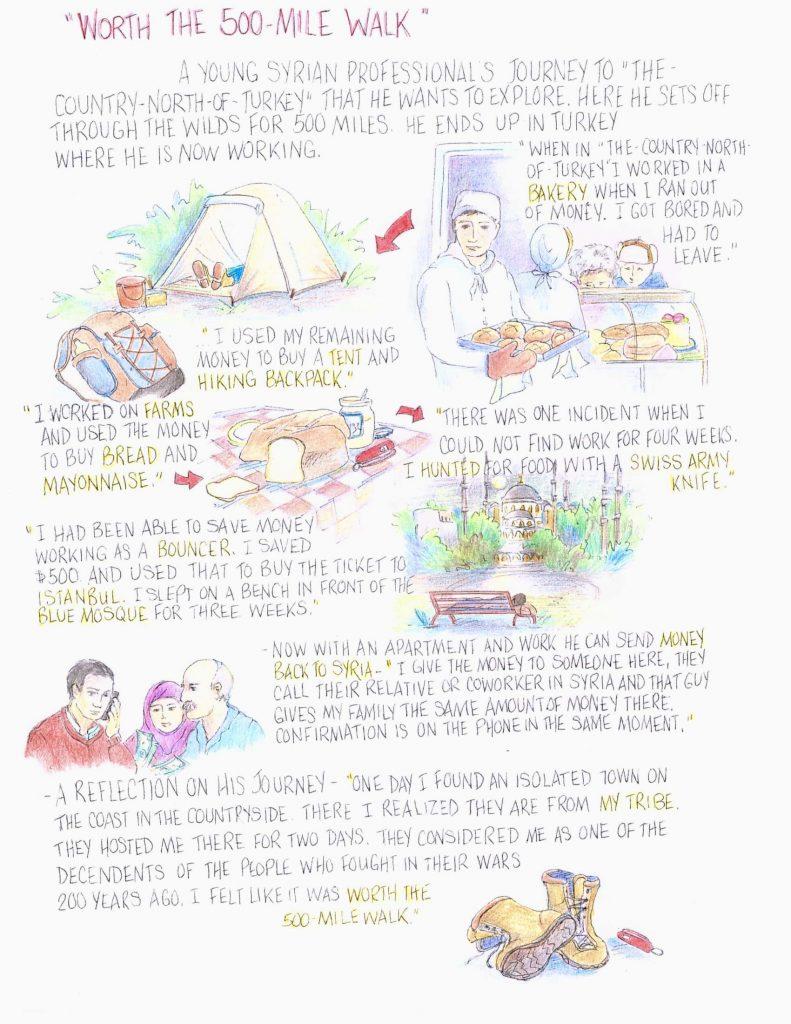 "WORTH THE 500-MILE WALK"
A YOUNG SYRIAN PROFESSIONAL'S JOURNEY TO "THE-
COUNTRY-NORTH-OF-TURKEY" THAT HE WANTS TO EXPLORE. HERE HE SETS OFF
THROUGH THE WILDS FOR 500 MILES. HE ENDS UP IN TURKEY
WHERE HE IS NOW WORKING.
"WHEN IN "THE-COUNTRY-NORTH-
OF-TURKEY" I WORKED IN A
BAKERY WHEN I RAN OUT
OF MONEY. I GOT BORED AND
HAD TO
LEAVE."
"I USED MY REMAINING
MONEY TO BUY A TENT AND
HIKING BACKPACK."
"I WORKED ON FARMS
AND USED THE MONEY
TO BUY BREAD AND
MAYONNAISE."
"THERE WAS ONE INCIDENT WHEN I
COULD NOT FIND WORK FOR FOUR WEEKS.
I HUNTED FOR FOOD WITH A SWISS ARMY
KNIFE."
"I HAD BEEN ABLE TO SAVE MONEY
WORKING AS A BOUNCER. I SAVED
$500 AND USED THAT TO BUY THE TICKET TO
ISTANBUL. I SLEPT ON A BENCH IN FRONT OF THE
BLUE MOSQUE FOR THREE WEEKS."
- NOW WITH AN APARTMENT AND WORK HE CAN SEND MONEY
BACK TO SYRIA - "I GIVE THE MONEY TO SOMEONE HERE, THEY
CALL THEIR RELATIVE OR COWORKER IN SYRIA AND THAT GUY
GIVES MY FAMILY THE SAME AMOUNT OF MONEY THERE.
CONFIRMATION IS ON THE PHONE IN THE SAME MOMENT."
- A REFLECTION ON HIS JOURNEY - "ONE DAY I FOUND AN ISOLATED TOWN ON
THE COAST IN THE COUNTRYSIDE. THERE I REALIZED THEY ARE FROM MY TRIBE.
THEY HOSTED ME THERE FOR TWO DAYS. THEY CONSIDERED ME AS ONE OF THE
DECENDENTS OF THE PEOPLE WHO FOUGHT IN THEIR WARS
200 YEARS AGO. I FELT LIKE IT WAS WORTH THE
500-MILE WALK."